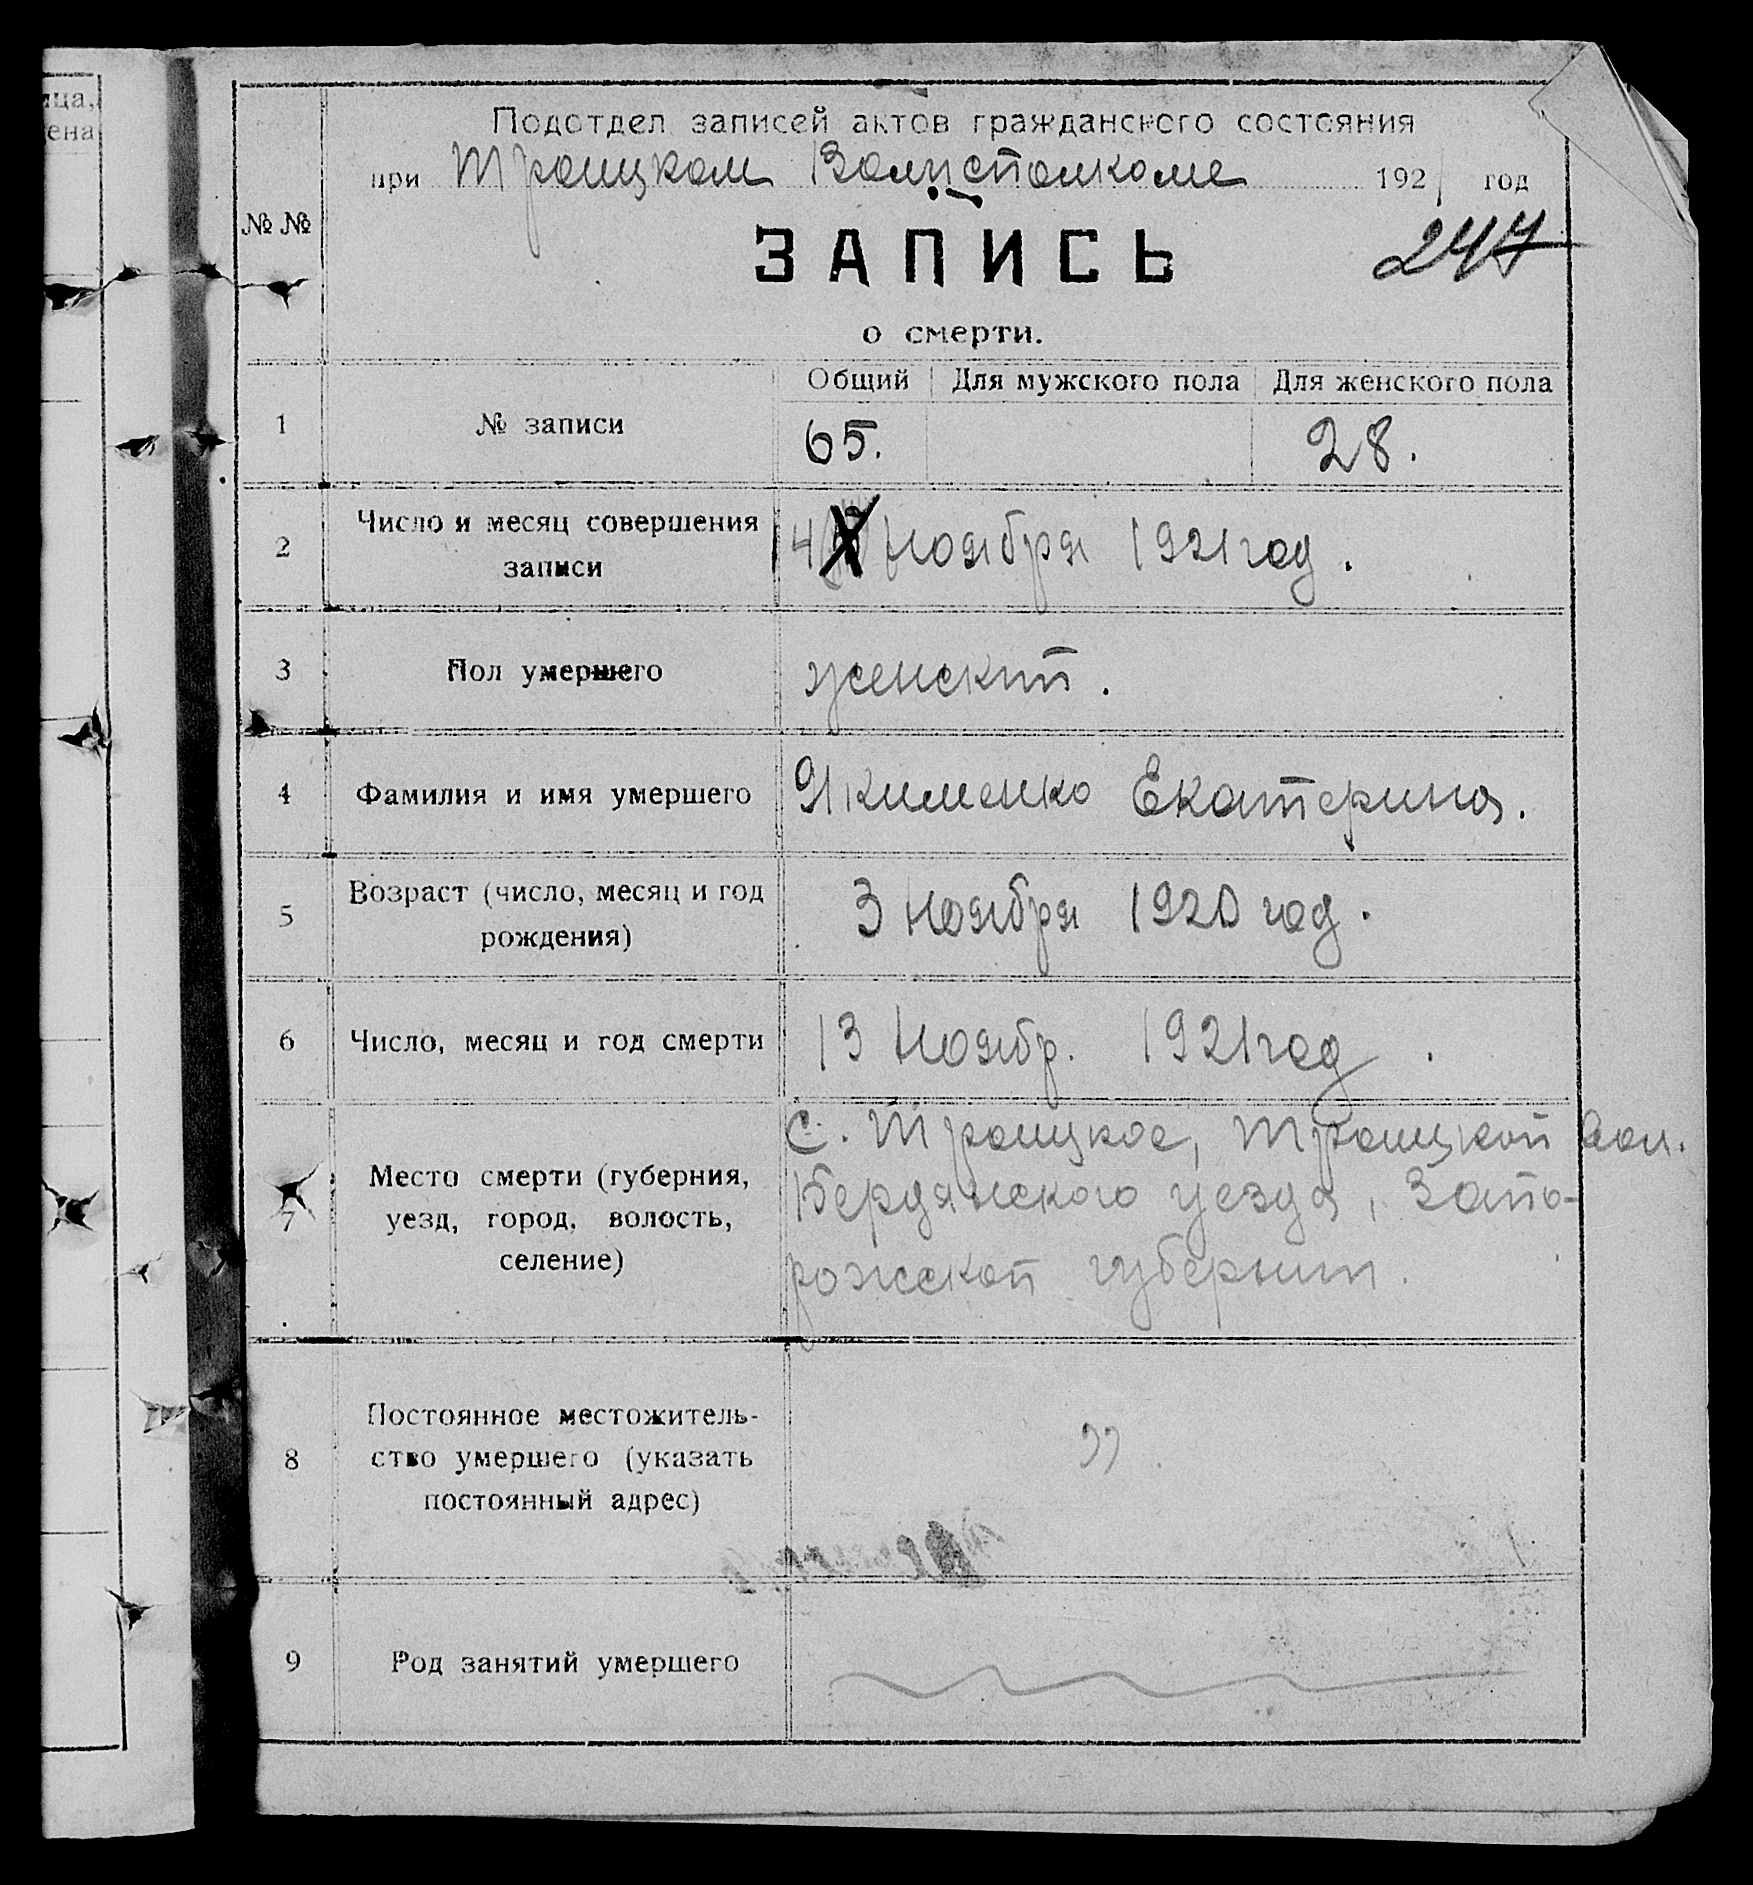 ица,
ена
Подотдел записей актов гражданского состояния
при Троицком Волисполкоме 1921 год
№ №
ЗАПИСЬ
247
о смерти.
Общий Для мужского пола Для женского пола
1 № записи 65. 28.
2 Число и месяц совершения
записи
14 Ноября 1921 год.
3 Пол умершего женский.
4 Фамилия и имя умершего Якименко Екатерина.
5 Возраст (число, месяц и год
рождения)
3 Ноября 1920 год.
6 Число, месяц и год смерти 13 Ноябр. 1921 год.
7 Место смерти (губерния,
уезд, город, волость,
селение)
С. Троицкое, Троицкой вол.
Бердянского уезда, Запо-
рожской губернии.
8 Постоянное местожитель-
ство умершего (указать
постоянный адрес)
"
9 Род занятий умершего